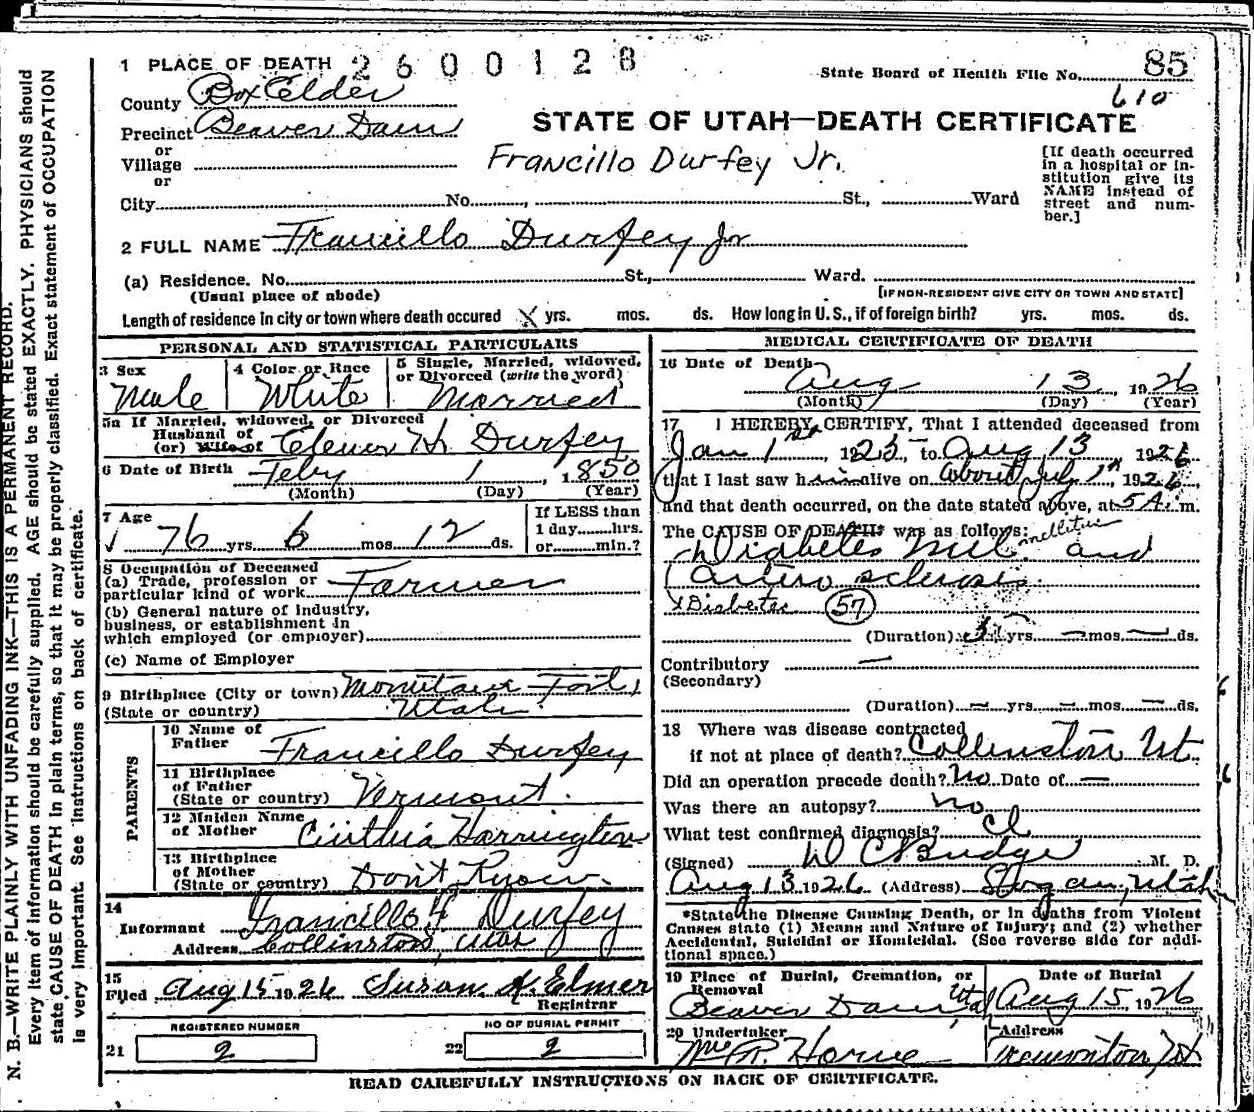 1 PLACE OF DEATH 2600128
State Board of Health File No. 85
County Box Elder
610
Precinct Beaver Dam
STATE OF UTAH—DEATH CERTIFICATE
or
Village
Francillo Durfey Jr.
[If death occurred in a hospital or institution give its NAME instead of street and number.]
or
City No. , St., Ward
2 FULL NAME Francillo Durfey Jr
(a) Residence. No. St., Ward.
(Usual place of abode) [IF NON-RESIDENT GIVE CITY OR TOWN AND STATE]
Length of residence in city or town where death occured X yrs. mos. ds. How long in U. S., if of foreign birth? yrs. mos. ds.
PERSONAL AND STATISTICAL PARTICULARS
3 Sex
Male
4 Color or Race
White
5 Single, Married, widowed,
or Divorced (write the word)
Married
5a If Married, widowed, or Divorced
Husband of
(or) Wife of H. Durfey
6 Date of Birth Feby 1, 1850
(Month) (Day) (Year)
7 Age
76 yrs. 6 mos. 12 ds.
If LESS than
1 day hrs.
or min.?
8 Occupation of Deceased
(a) Trade, profession or
particular kind of work Farmer
(b) General nature of Industry,
business, or establishment in
which employed (or employer)
(c) Name of Employer
9 Birthplace (City or town) Fort,
(State or country) Utah
PARENTS
10 Name of
Father Francillo Durfey
11 Birthplace
of Father
(State or country) Vermont.
12 Maiden Name
of Mother Cinthia Harrington
13 Birthplace
of Mother
(State or country) Don't Know
14
Informant Francillo F. Durfey
Address Collinston, Utah
15
Filed Aug 15 1926 Susan K. Elmer
Registrar
REGISTERED NUMBER
21 2
NO OF BURIAL PERMIT
22 2
MEDICAL CERTIFICATE OF DEATH
16 Date of Death
Aug 13 1926
(Month) (Day) (Year)
17 I HEREBY CERTIFY, That I attended deceased from
Jan 1st, 1925, to Aug 13 1926
that I last saw him alive on about July 1st, 1926
and that death occurred, on the date stated above, at 5 A. m.
The CAUSE OF DEATH* was as follows:
Diabetes Mel. mellitus and
Arterio sclerosis.
x Diabetes 57
(Duration) yrs. — mos. — ds.
Contributory —
(Secondary)
(Duration) — yrs. — mos. — ds.
18 Where was disease contracted
if not at place of death? Collinston Ut
Did an operation precede death? no Date of —
Was there an autopsy? no
What test confirmed diagnosis? Cl
(Signed) D C Budge M. D.
Aug 13 1926 (Address) Logan, Utah
*State the Disease Causing Death, or in deaths from Violent
Causes state (1) Means and Nature of Injury; and (2) whether
Accidental, Suicidal or Homicidal. (See reverse side for addi-
tional space.)
19 Place of Burial, Cremation, or
Removal
Beaver Dam Utah
Date of Burial
Aug 15, 1926
20 Undertaker
R. Horne
Address
Tremonton Ut
READ CAREFULLY INSTRUCTIONS ON BACK OF CERTIFICATE.
N. B.—WRITE PLAINLY WITH UNFADING INK—THIS IS A PERMANENT RECORD.
Every item of information should be carefully supplied. AGE should be stated EXACTLY. PHYSICIANS should
state CAUSE OF DEATH in plain terms, so that it may be properly classified. Exact statement of OCCUPATION
is very important. See Instructions on back of certificate.